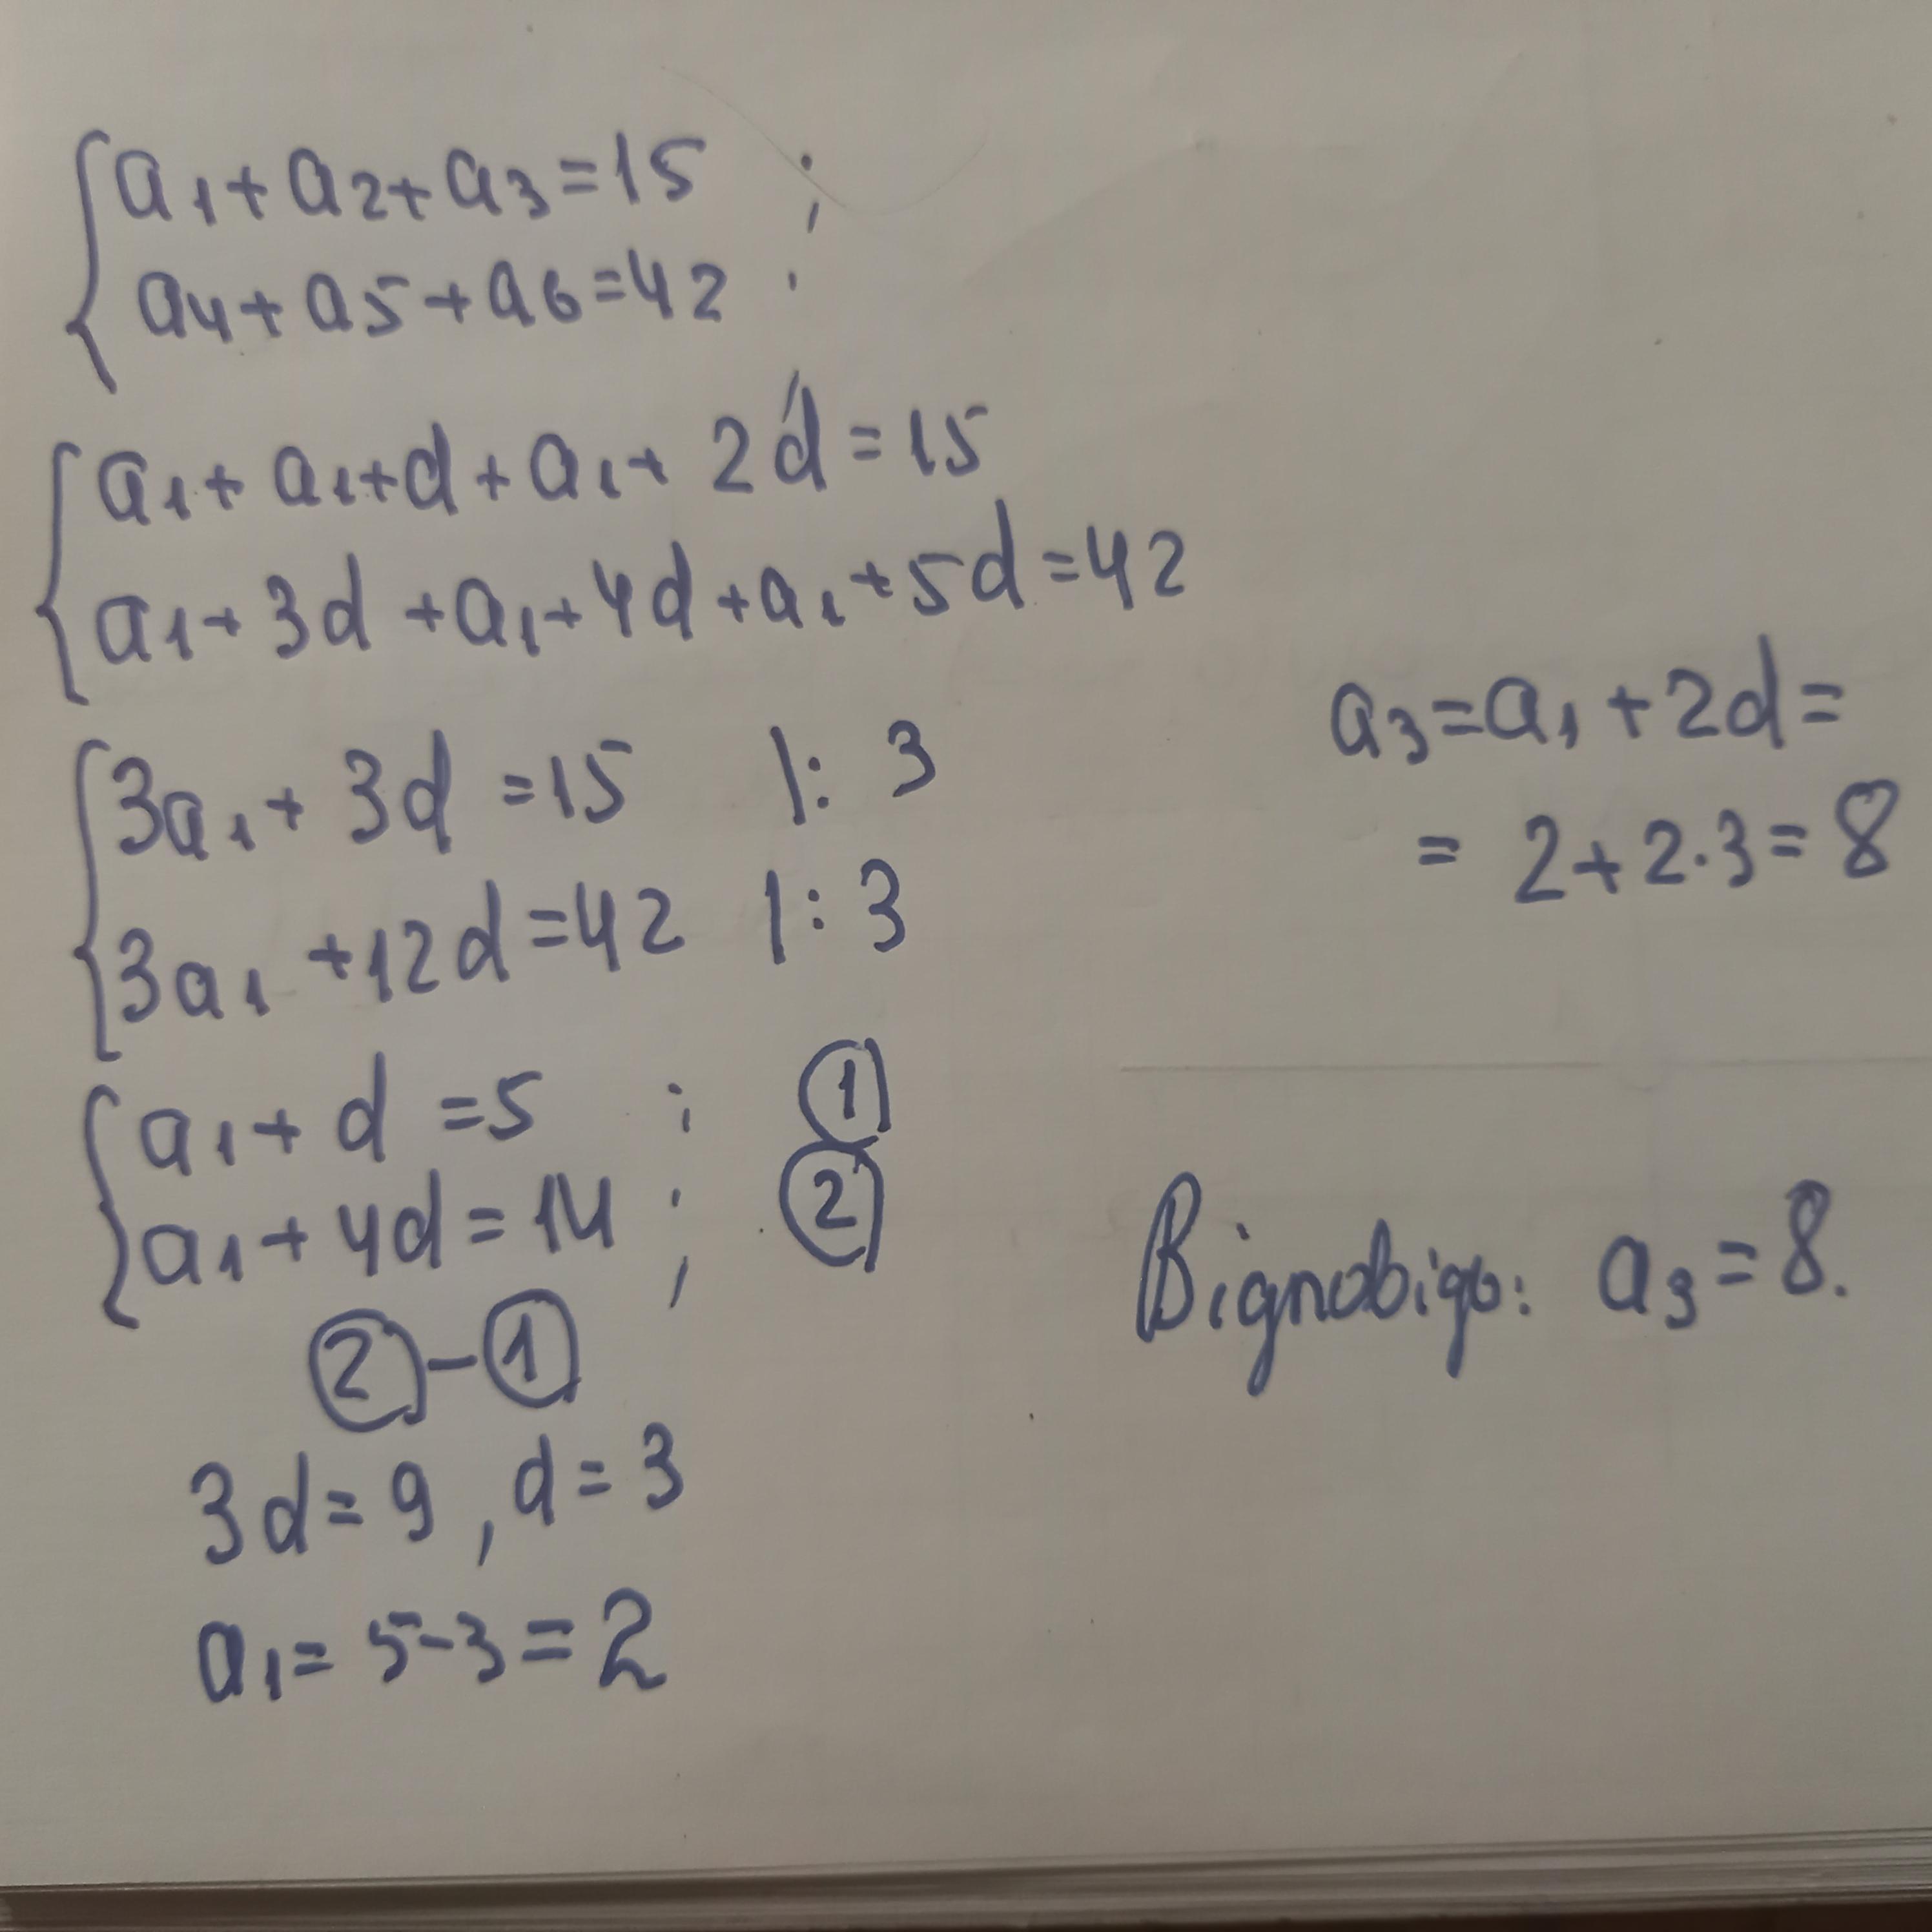 a₁ + a₂ + a₃ = 15 ;
a₄ + a₅ + a₆ = 42 ;
a₁ + a₁ + d + a₁ + 2d = 15
a₁ + 3d + a₁ + 4d + a₁ + 5d = 42
3a₁ + 3d = 15 |: 3
3a₁ + 12d = 42 |: 3
a₁ + d = 5 ; ①
a₁ + 4d = 14 ; ②
② − ①
3d = 9 , d = 3
a₁ = 5 − 3 = 2
a₃ = a₁ + 2d =
= 2 + 2 · 3 = 8
Відповідь: a₃ = 8.